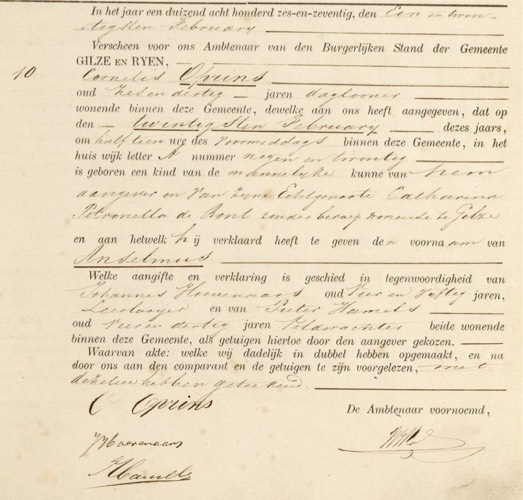 In het jaar een duizend acht honderd zes-en-zeventig, den Een en twin-
tigsten February
Verscheen voor ons Ambtenaar van den Burgerlijken Stand der Gemeente
GILZE EN RYEN,
10
Cornelis Oprins
oud zes en dertig jaren daglooner
wonende binnen deze Gemeente, dewelke aan ons heeft aangegeven, dat op
den twintigsten February dezes jaars,
om half tien ure des voormiddags binnen deze Gemeente, in het
huis wijk letter A nummer negen en twintig
is geboren een kind van de mannelyke kunne van hem
aangever en van zyne Echtgenoote Catharina
Petronella de Ront zonder beroep wonende te Gilze
en aan hetwelk hij verklaard heeft te geven den voornaam van
Anselmus
Welke aangifte en verklaring is geschied in tegenwoordigheid van
Johannes Hoevenaars oud Vier en Vyftig jaren,
Leerlooyer en van Pieter Hamels
oud Vier en dertig jaren Veldwachter beide wonende
binnen deze Gemeente, als getuigen hiertoe door den aangever gekozen.
Waarvan akte: welke wij dadelijk in dubbel hebben opgemaakt, en na
door ons aan den comparant en de getuigen te zijn voorgelezen, met
dezelve hebben geteekend.
C Oprins
De Ambtenaar voornoemd,
J Hoevenaars
P Hamels